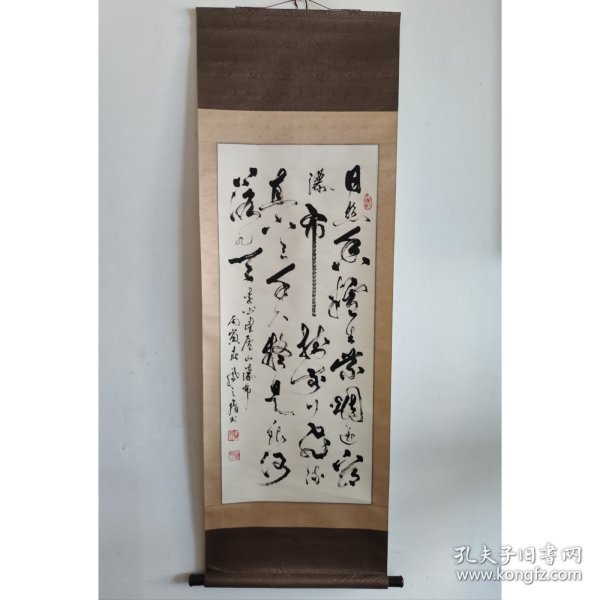 日照香炉生紫烟遥看
瀑布挂前川飞流
直下三千尺疑是银河
落九天
李白望庐山瀑布
丙寅春
孔夫子旧书网
www.kongfz.com